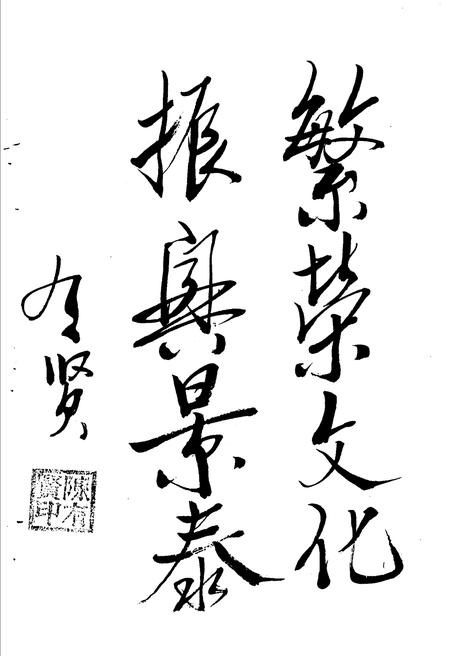 繁荣文化
振兴景泰
有贤
陈有贤印